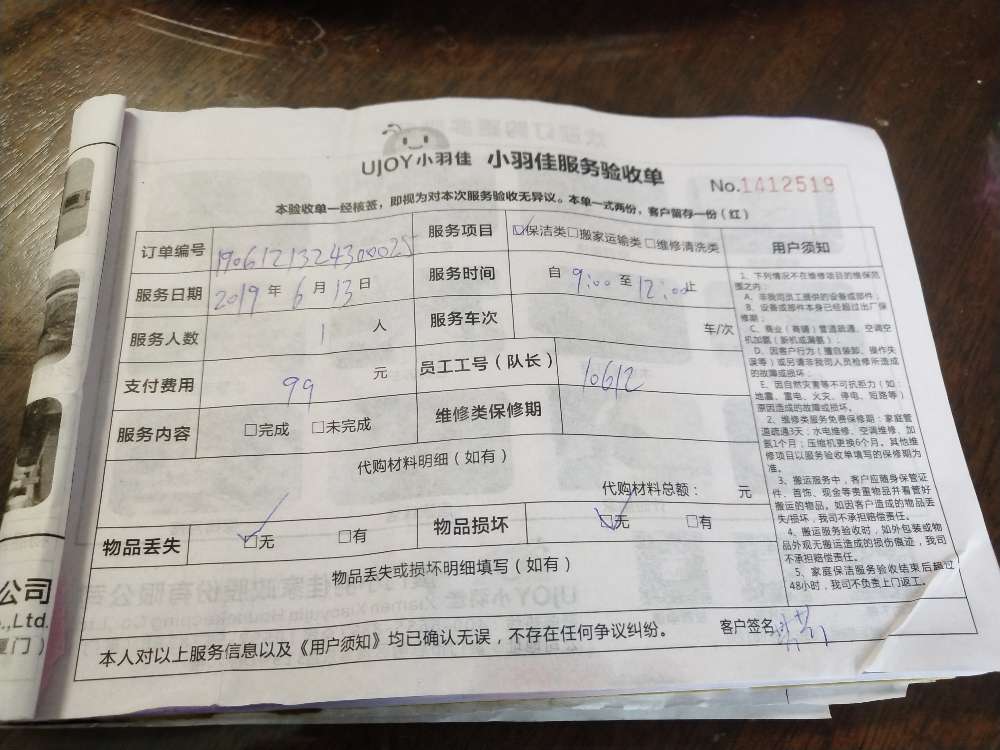 UJOY小羽佳 小羽佳服务验收单
No.1412519
本验收单一经核签，即视为对本次服务验收无异议。本单一式两份，客户留存一份（红）
订单编号 1906121324300025 服务项目 ☑保洁类□搬家运输类□维修清洗类
服务日期 2019年6月13日 服务时间 自9:00至12:00止
服务人数 1 人 服务车次 车/次
支付费用 99 元 员工工号（队长） 10612
服务内容 □完成 □未完成 维修类保修期
代购材料明细（如有）
代购材料总额： 元
物品丢失 ☑无 □有 物品损坏 ☑无 □有
物品丢失或损坏明细填写（如有）
本人对以上服务信息以及《用户须知》均已确认无误，不存在任何争议纠纷。 客户签名
用户须知
1、下列情况不在维修项目的维保范
围之内：
A、非我司员工提供的设备或部件；
B、设备或部件本身已经超过出厂保
修期；
C、商业（商铺）管道疏通、空调空
机加氨（新机或漏氨）；
D、因客户行为（擅自装卸、操作失
误等）或另请非我司人员检修所造成
的故障或损坏；
E、因自然灾害等不可抗拒力（如：
地震、雷电、火灾、停电、短路等）
原因造成的故障或损坏。
2、维修类服务免费保修期：家庭管
道疏通3天；水电维修、空调维修、加
氨1个月；压缩机更换6个月。其他维
修项目以服务验收单填写的保修期为
准。
3、搬运服务中，客户应随身保管证
件、首饰、现金等贵重物品并看管好
搬运的物品。如因客户造成的物品丢
失/损坏，我司不承担赔偿责任。
4、搬运服务验收时，如外包装或物
品外观无搬运造成的损伤痕迹，我司
不承担赔偿责任。
5、家庭保洁服务验收结束后超过
48小时，我司不负责上门返工。
公司
.,Ltd.
厦门）